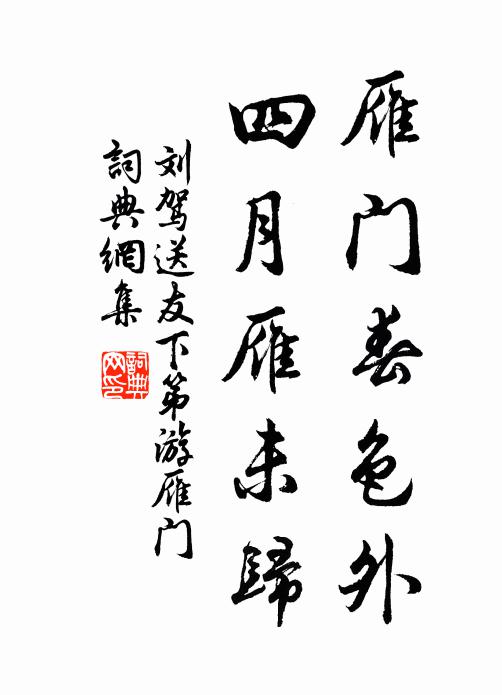 雁门春色外
四月雁未歸
刘驾送友下第游雁门
詞典網集
詞典網印